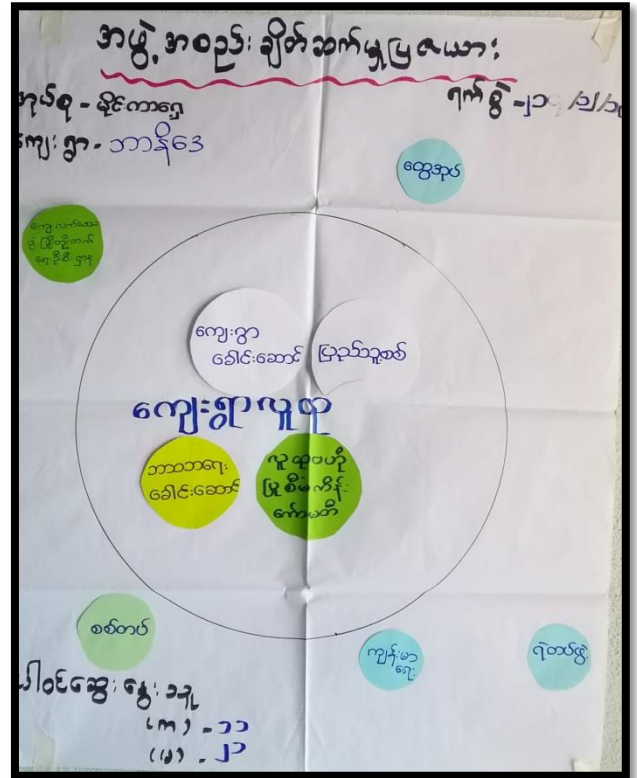 အဖွဲ့အစည်းချိတ်ဆက်မှုပြဇယား
အုပ်စု - မိုင်းကာရှေ
ရက်စွဲ -
ကျေးရွာ - ဘာနိဒေ
ထွေအုပ်
ကျေးလက်ဒေသ
ဖွံ့ဖြိုးတိုးတက်
ရေးဦးစီးဌာန
ကျေးရွာ
ခေါင်းဆောင်
ပြည်သူ့စစ်
ကျေးရွာလူထု
ဘာသာရေး
ခေါင်းဆောင်
လူထုဗဟို
ပြုစီမံကိန်း
ကော်မတီ
စစ်တပ်
ကျန်းမာ
ရေး
ရဲတပ်ဖွဲ့
ပါဝင်ဆွေးနွေးသူ
(က) - ၁၁
(မ) - ၂၁